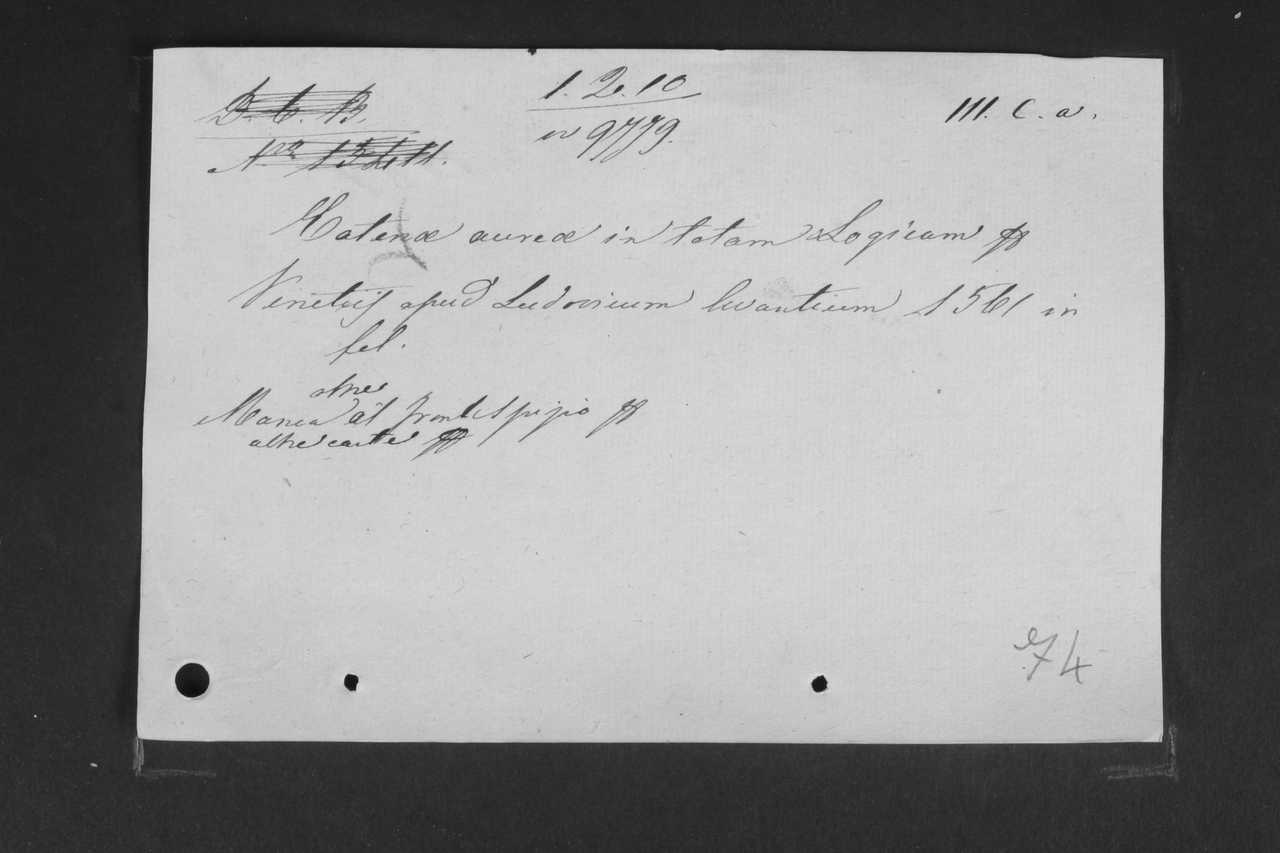 D. C. B.
1. 2. 10
III. C. a.
9779.
Catenæ aureæ in totam Logicam &
Venetijs apud Ludovicum Avantium 1561 in
fol.
oltre
Manca al frontespizio &
altre carte &
74